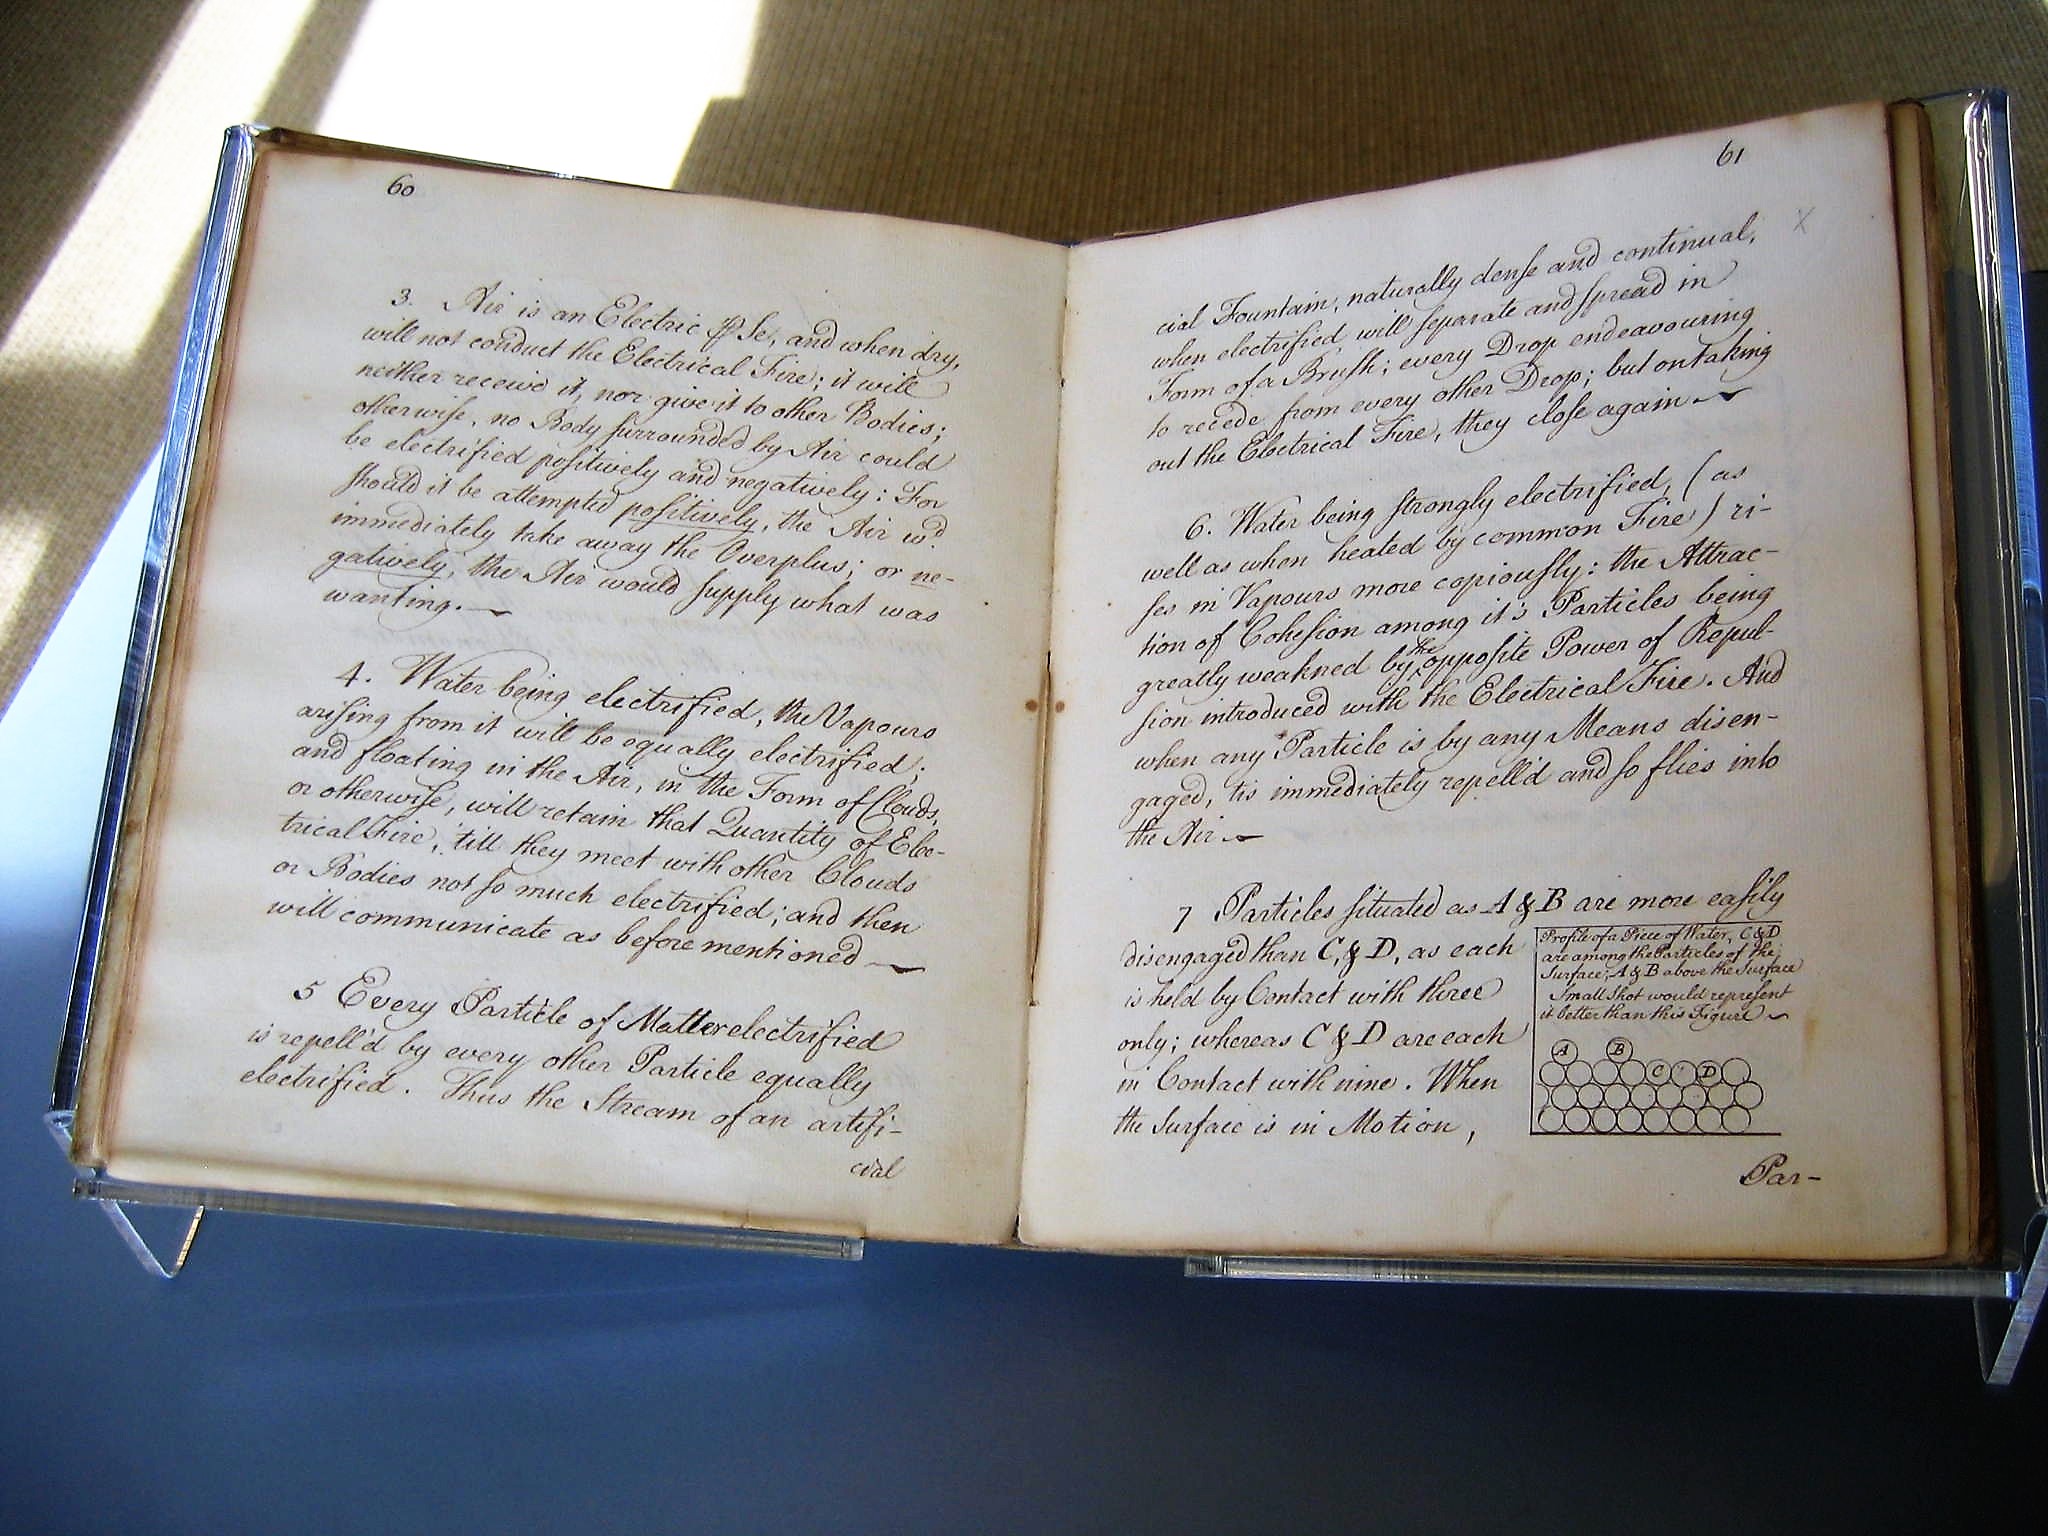 60
3. Air is an Electric ꝑ Se, and when dry,
will not conduct the Electrical Fire; it will
neither receive it, nor give it to other Bodies;
otherwiſe, no Body ſurrounded by Air could
be electrified poſitively and negatively: For
ſhould it be attempted poſitively, the Air wd.
immediately take away the Overplus; or ne-
gatively, the Air would ſupply what was
wanting.
4. Water being electrified, the Vapours
ariſing from it will be equally electrified;
and floating in the Air, in the Form of Clouds,
or otherwiſe, will retain that Quantity of Elec-
trical Fire, till they meet with other Clouds
or Bodies not ſo much electrified; and then
will communicate as before mentioned
5 Every Particle of Matter electrified
is repell'd by every other Particle equally
electrified. Thus the Stream of an artifi-
cial
61
X
cial Fountain, naturally denſe and continual,
when electrified will ſeparate and ſpread in
Form of a Bruſh; every Drop endeavouring
to recede from every other Drop; but on taking
out the Electrical Fire, they cloſe again
6. Water being ſtrongly electrified, (as
well as when heated by common Fire) ri-
ſes in Vapours more copiouſly: the Attrac-
tion of Coheſion among it's Particles being
greatly weakned by the oppoſite Power of Repul-
ſion introduced with the Electrical Fire. And
when any Particle is by any Means disen-
gaged, tis immediately repell'd and ſo flies into
the Air
7 Particles ſituated as A & B are more eaſily
disengaged than C, & D, as each
is held by Contact with three
only; whereas C & D are each
in Contact with nine. When
the Surface is in Motion,
Profile of a Piece of Water, C & D
are among the Particles of the
Surface; A & B above the Surface
Small Shot would repreſent
it better than this Figure
A B
C D
Par-